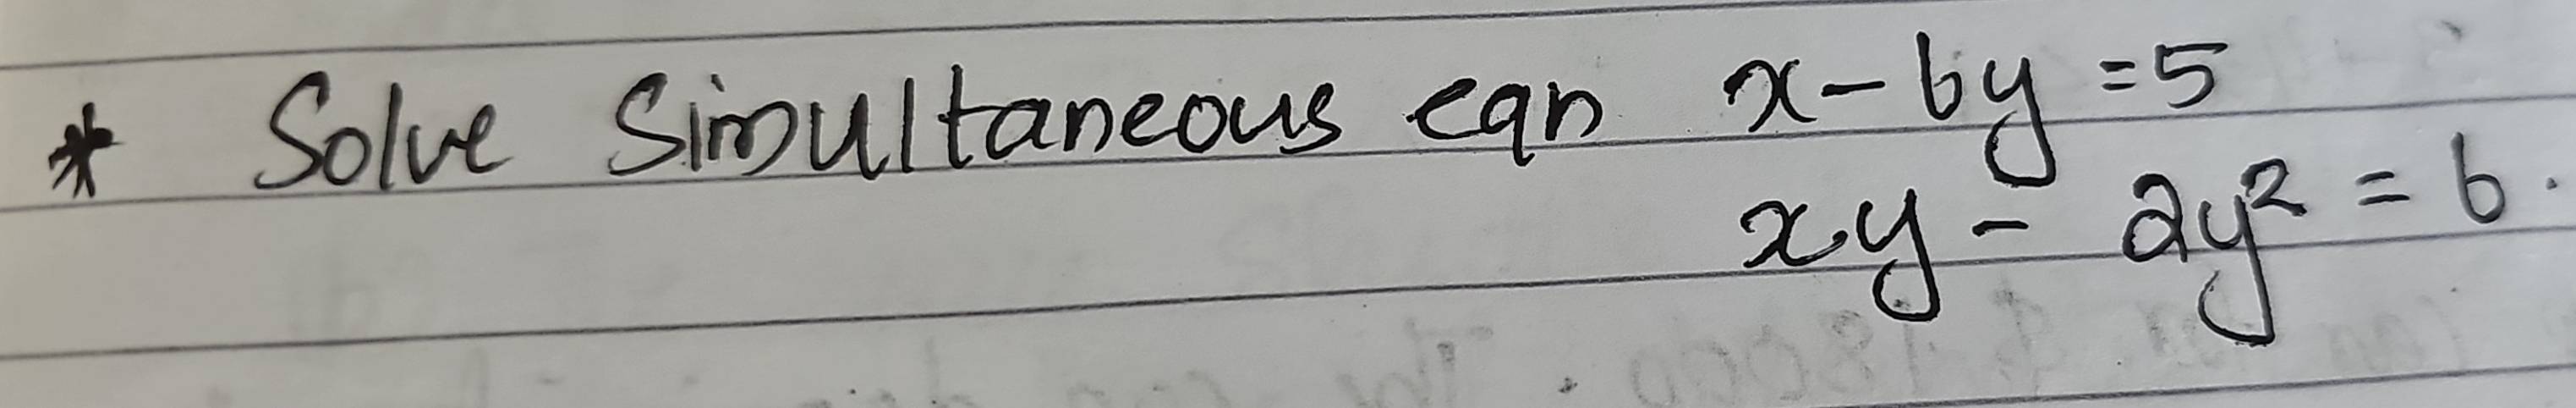 * Solve Simultaneous eqn x - 6y = 5
xy - 2y² = 6.